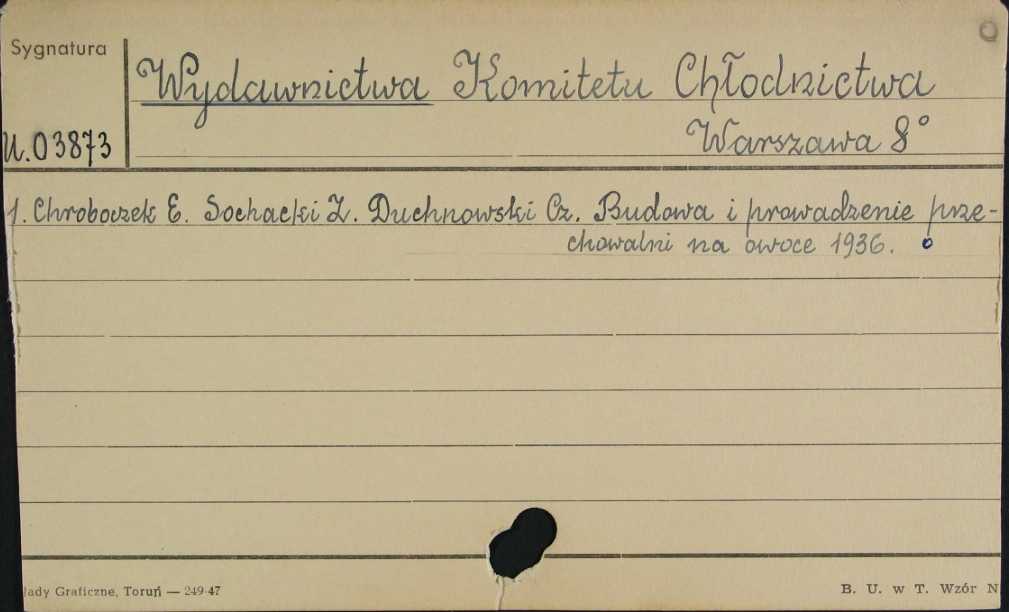 Sygnatura
Wydawnictwa Komitetu Chłodnictwa
U.03873
Warszawa 8°
1. Chroboczek E. Sochacki Z. Duchnowski Cz. Budowa i prowadzenie prze-
chowalni na owoce 1936.
łady Graficzne, Toruń — 249-47
B. U. w T. Wzór N